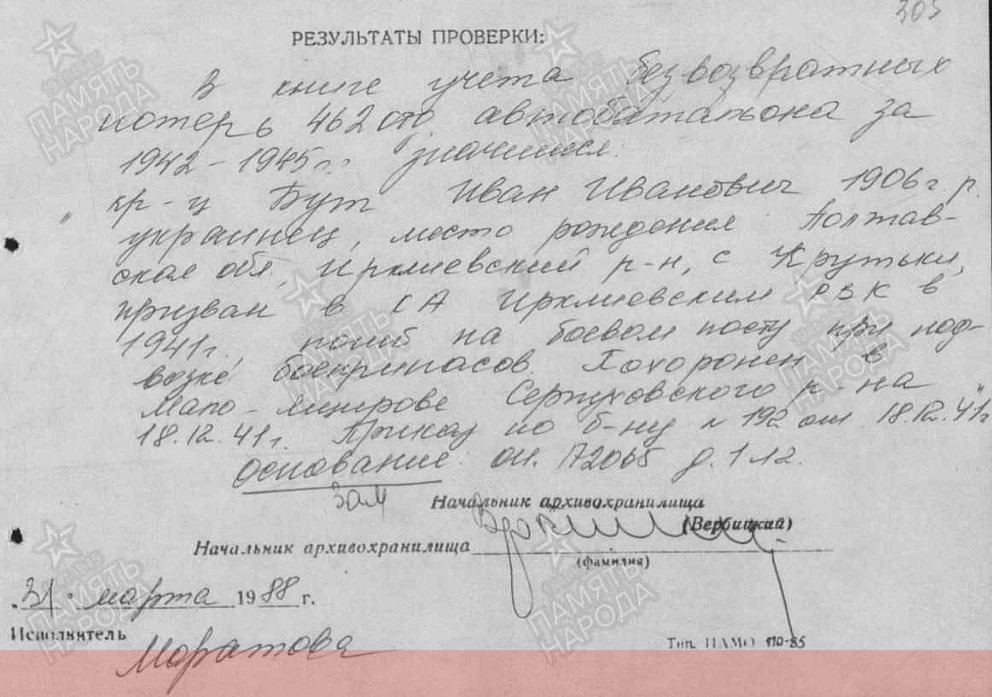 303
РЕЗУЛЬТАТЫ ПРОВЕРКИ:
В книге учета безвозвратных
потерь 462 отд автобатальона за
1942-1945г.г. значится:
„ кр-ц Бут Иван Иванович 1906г.р.
украинец, место рождения Полтав-
ская обл, Ирклиевский р-н, с Крутьки,
призван в КА Ирклиевским РВК в
1941г., погиб на боевом посту при под-
возке боеприпасов. Похоронен в
Мало- Серпуховского р-на
18.12.41г. Приказ по б-ну № 192 от 18.12.41г"
Основание: оп. А2065 д.1 л2.
зам Начальник архивохранилища
(Вербицкий)
Начальник архивохранилища
(фамилия)
„31" марта 1988 г.
Исполнитель
Моратова
Тип. ЦАМО 110-85
ПАМЯТЬ НАРОДА